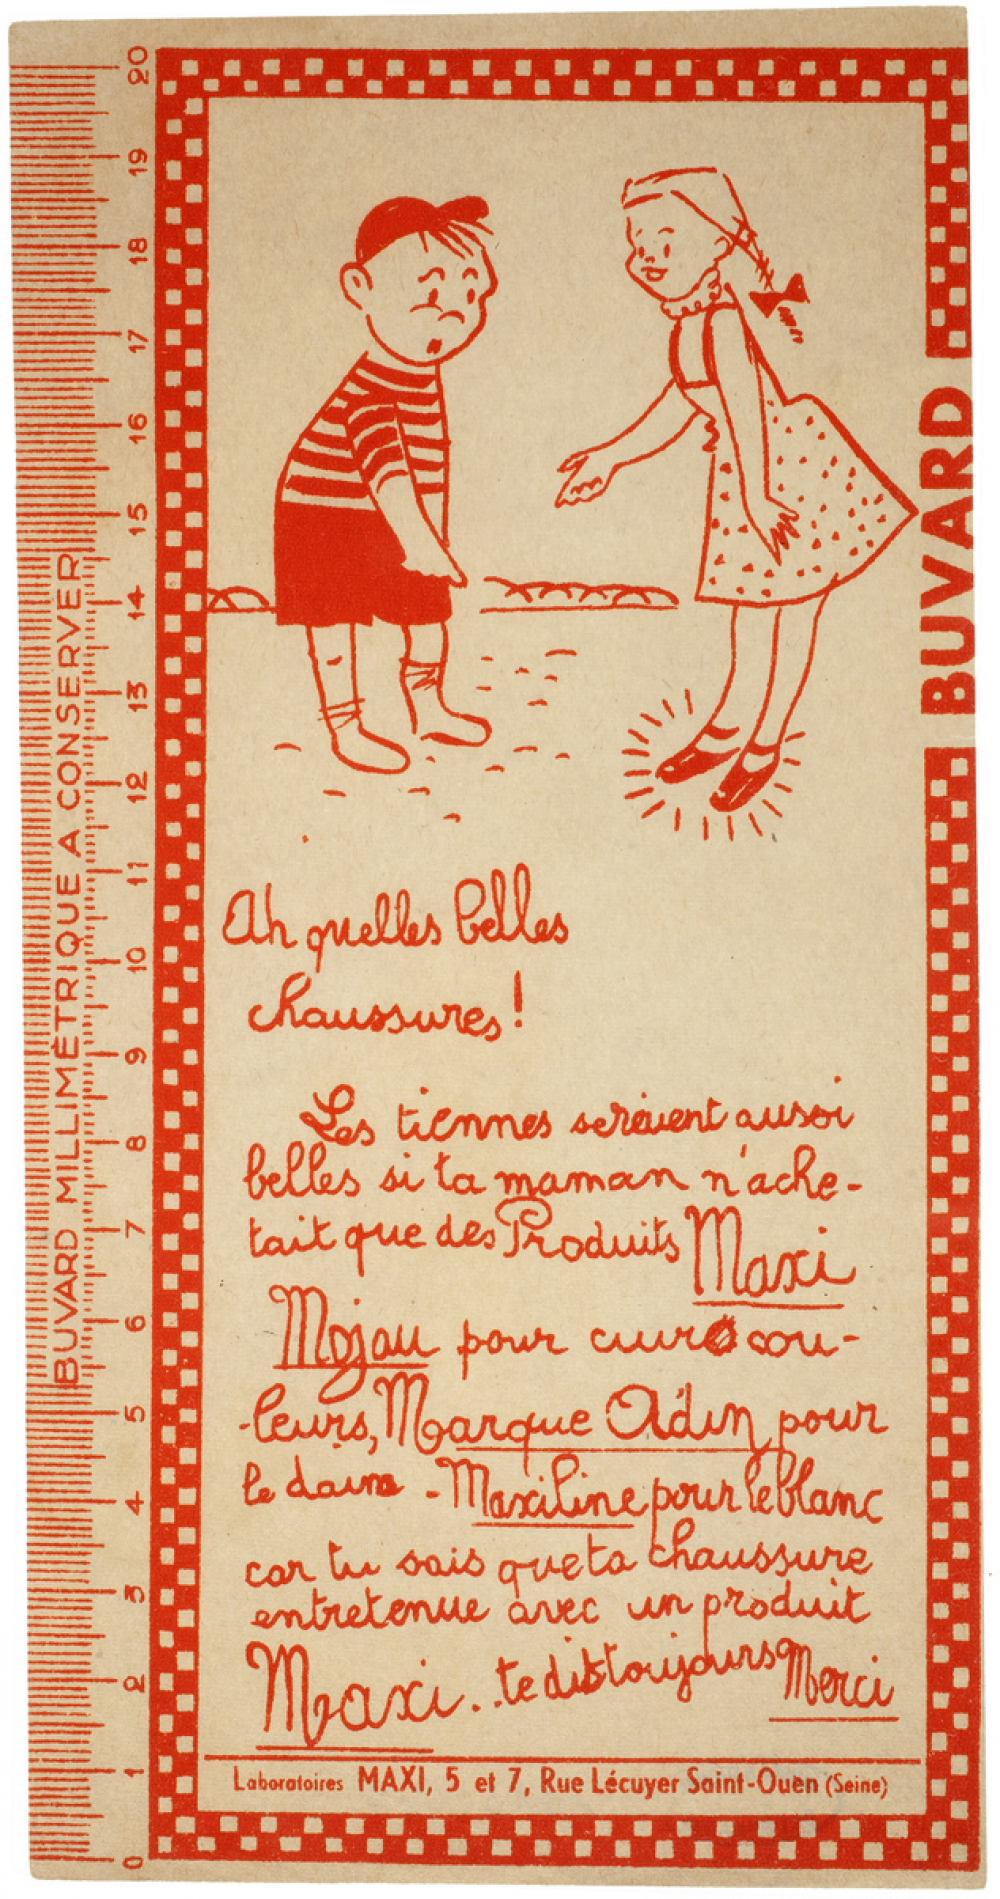 BUVARD MILLIMÉTRIQUE A CONSERVER
20
19
18
17
16
15
14
13
12
11
10
9
8
7
6
5
4
3
2
1
0
BUVARD
Ah quelles belles
chaussures !
Les tiennes seraient aussi
belles si ta maman n'ache-
tait que des Produits Maxi
Mojau pour cuirs cou-
-leurs, Marque Adin pour
le daim - Maxiline pour le blanc
car tu sais que ta chaussure
entretenue avec un produit
Maxi.. te dit toujours Merci
Laboratoires MAXI, 5 et 7, Rue Lécuyer Saint-Ouen (Seine)